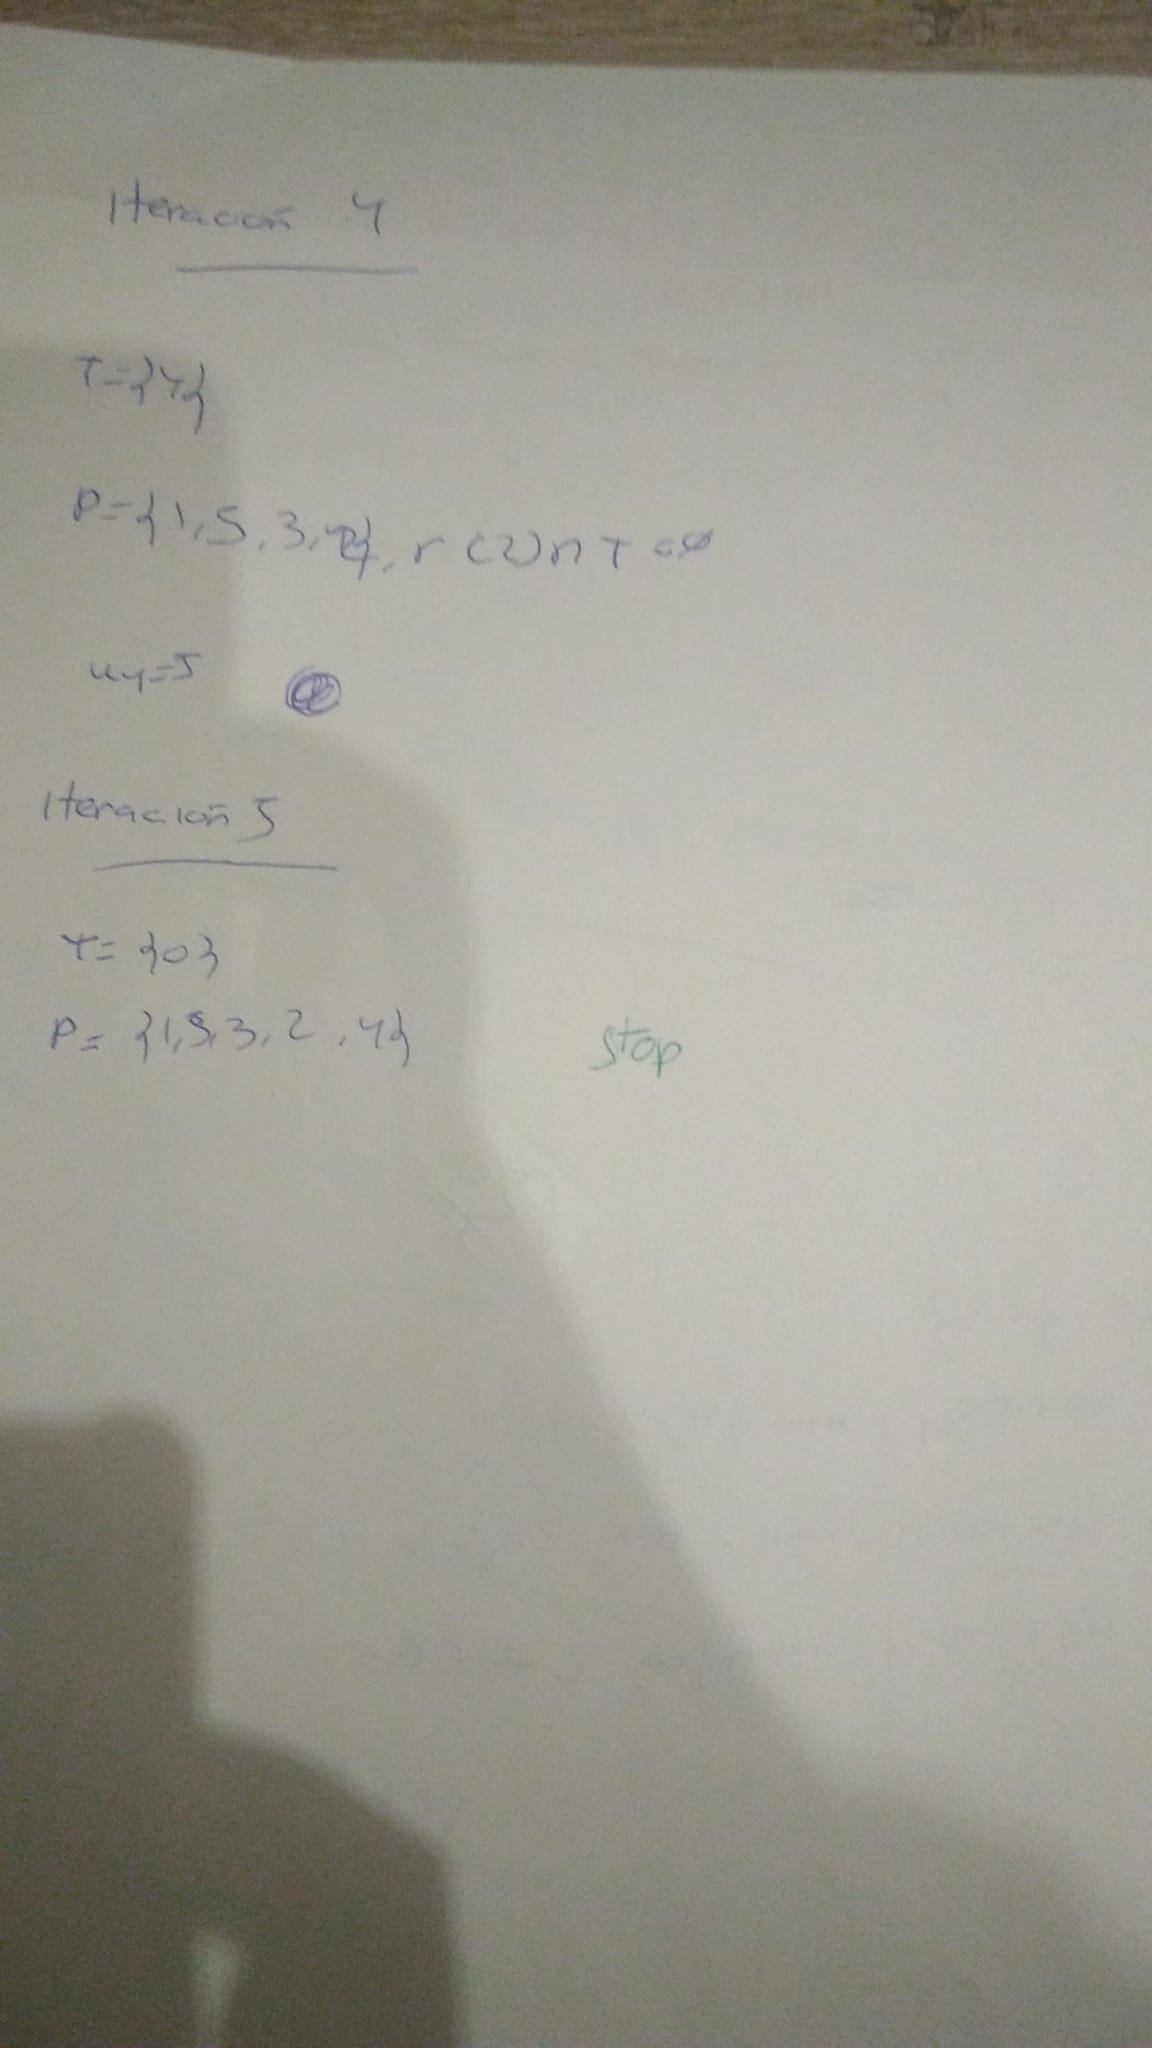 Iteración 4
T={4}
P={1,5,3,2}, r(2)∩T=∅
u4=5
Iteración 5
T={0}
P={1,5,3,2,4} stop